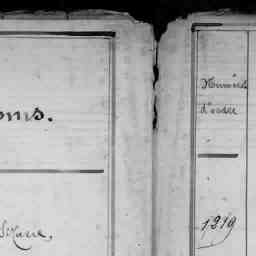 oms.
Numéros
d'ordre
1219